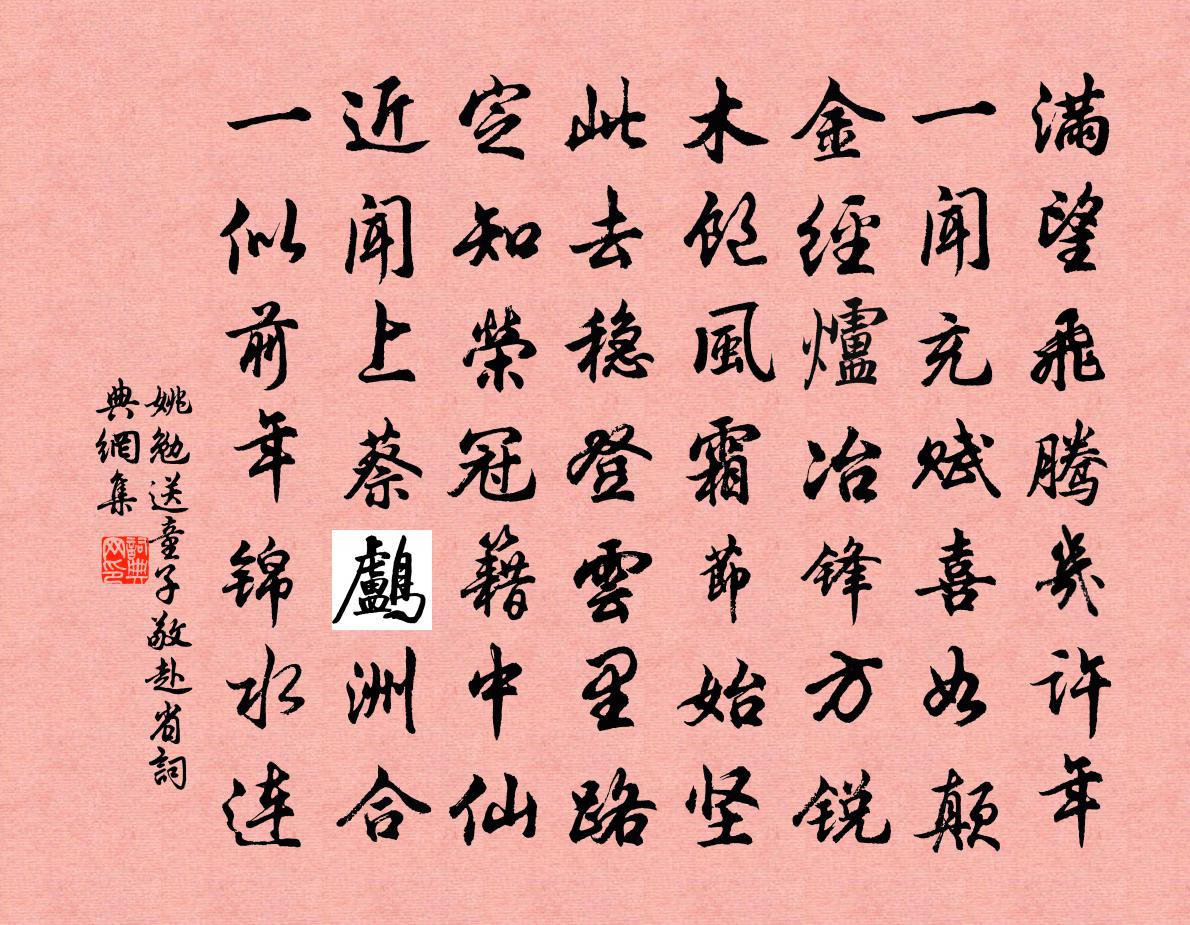 滿望飛騰幾许年
一聞充赋喜如颠
金經爐冶锋方锐
木飽風霜節始坚
此去穏登雲里路
定知榮冠籍中仙
近聞上蔡鸕洲合
一似前年锦水連
姚勉送童子敬赴省詞
典網集
詞典
网印